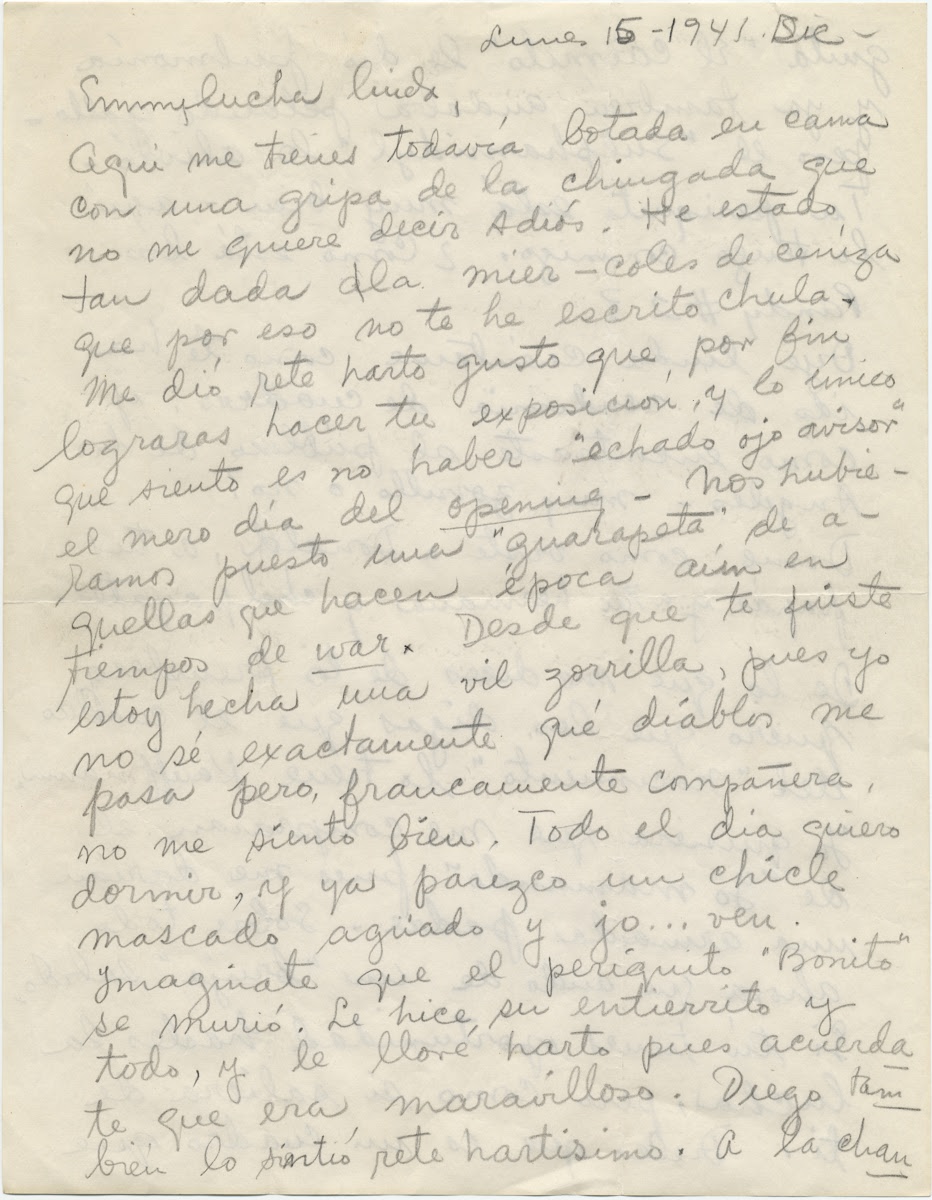 Lunes 15-1941. Dic-
Emmylucha linda,
Aquí me tienes todavía botada en cama
con una gripa de la chingada que
no me quiere decir adiós. He estado
tan dada a la mier-coles de ceniza
que por eso no te he escrito chula.
Me dió rete harto gusto que por fin
lograras hacer tu exposición, y lo único
que siento es no haber "echado ojo avisor"
el mero día del opening - Nos hubie-
ramos puesto una "guarapeta" de a-
quellas que hacen época aún en
tiempos de war. Desde que te fuiste
estoy hecha una vil zorrilla, pues yo
no sé exactamente qué diablos me
pasa pero, francamente compañera,
no me siento bien. Todo el día quiero
dormir, y ya parezco un chicle
mascado agüado y jo... ven.
Ymagínate que el periquito "Bonito"
se murió. Le hice su entierrito y
todo, y le lloré harto pues acuérda
te que era maravilloso. Diego tam
bién lo sintió rete hartísimo. A la chan